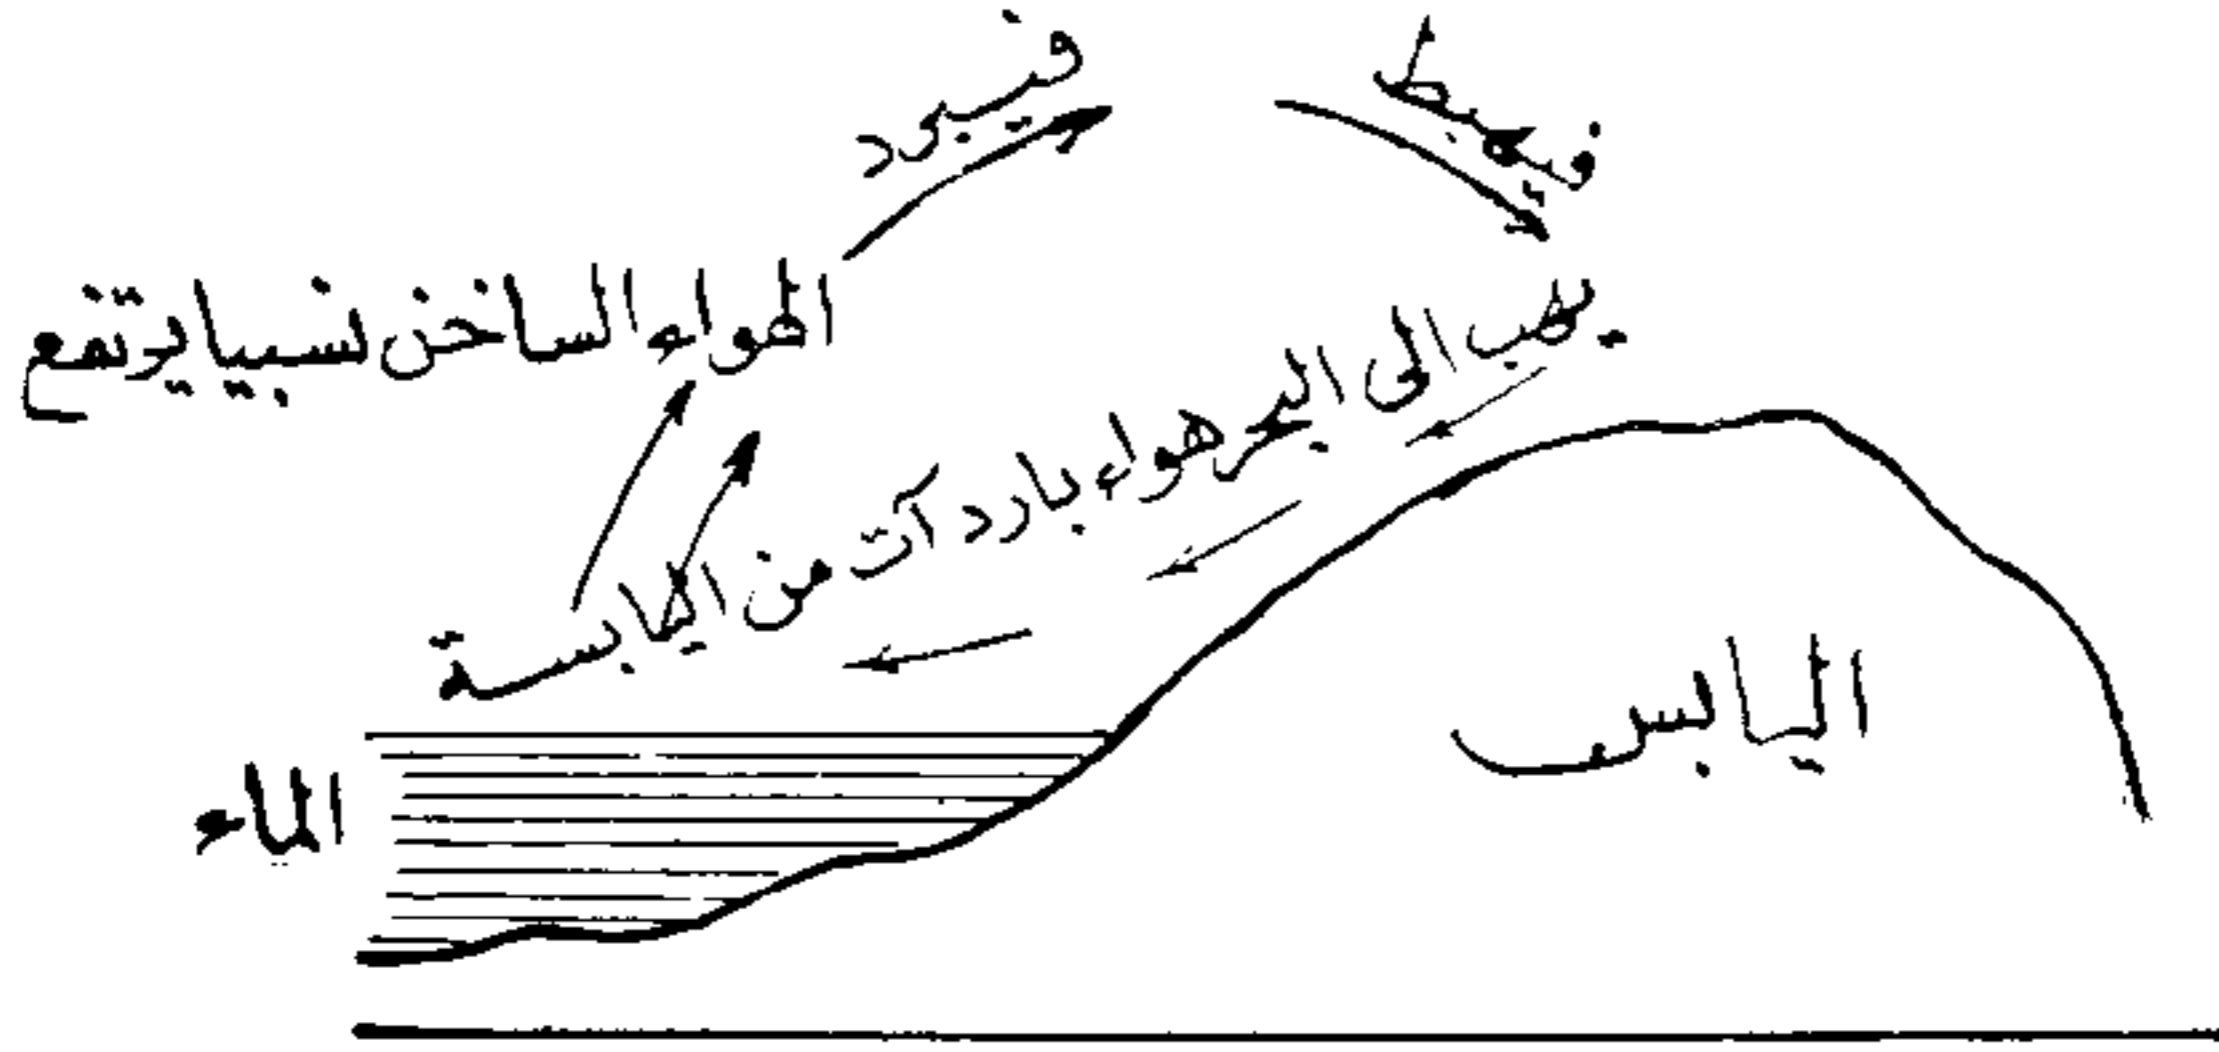 فيبرد
فيهبط
الهواء الساخن نسبيا يرتفع
يهب الى البحر هواء بارد آت من اليابسة
اليابس
الماء